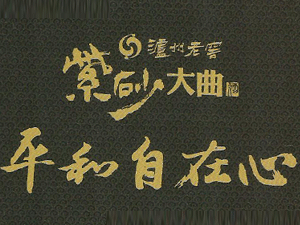 泸州老窖
紫砂大曲
平和自在心